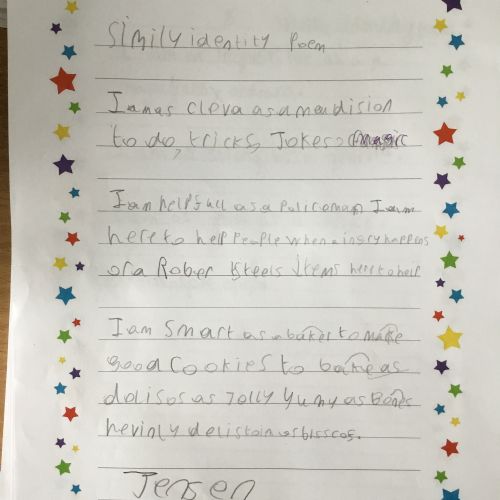 Simily identity Poem
I am as cleva as a mendision
to do, tricks, Jokes, magic
I am helpfull as a Policeman I am
here to help People when a ingry happens
or a Rober steels items here to help
I am Smart as a baker to make
good cookies to bake as
delisos as Jolly Yumy as
hevinly as
Jensen